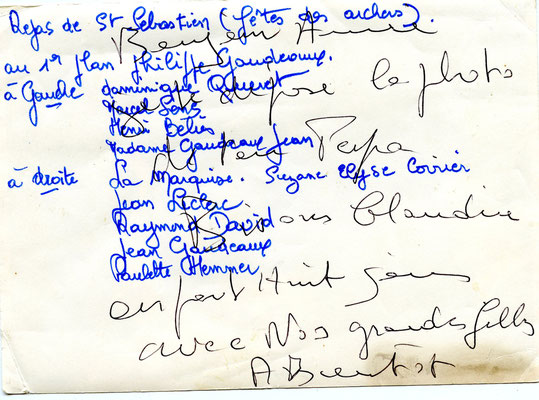 Repas de St Sébastien (fêtes des archers).
au 1er plan philippe Gaudeaux.
à Gauche dominique Queret
Marcel Sené
Henri Bélier
Madame Gaudeaux Jean
à droite La Marquise. Suzane Elyse Coirier
Jean Leclerc
Raymond David
Jean Gaudeaux
Paulette Hemmer
Bonjour Annie
la photo
Pepa
Claudine
on part Huit jours
avec Nos grandes filles
A Bientot